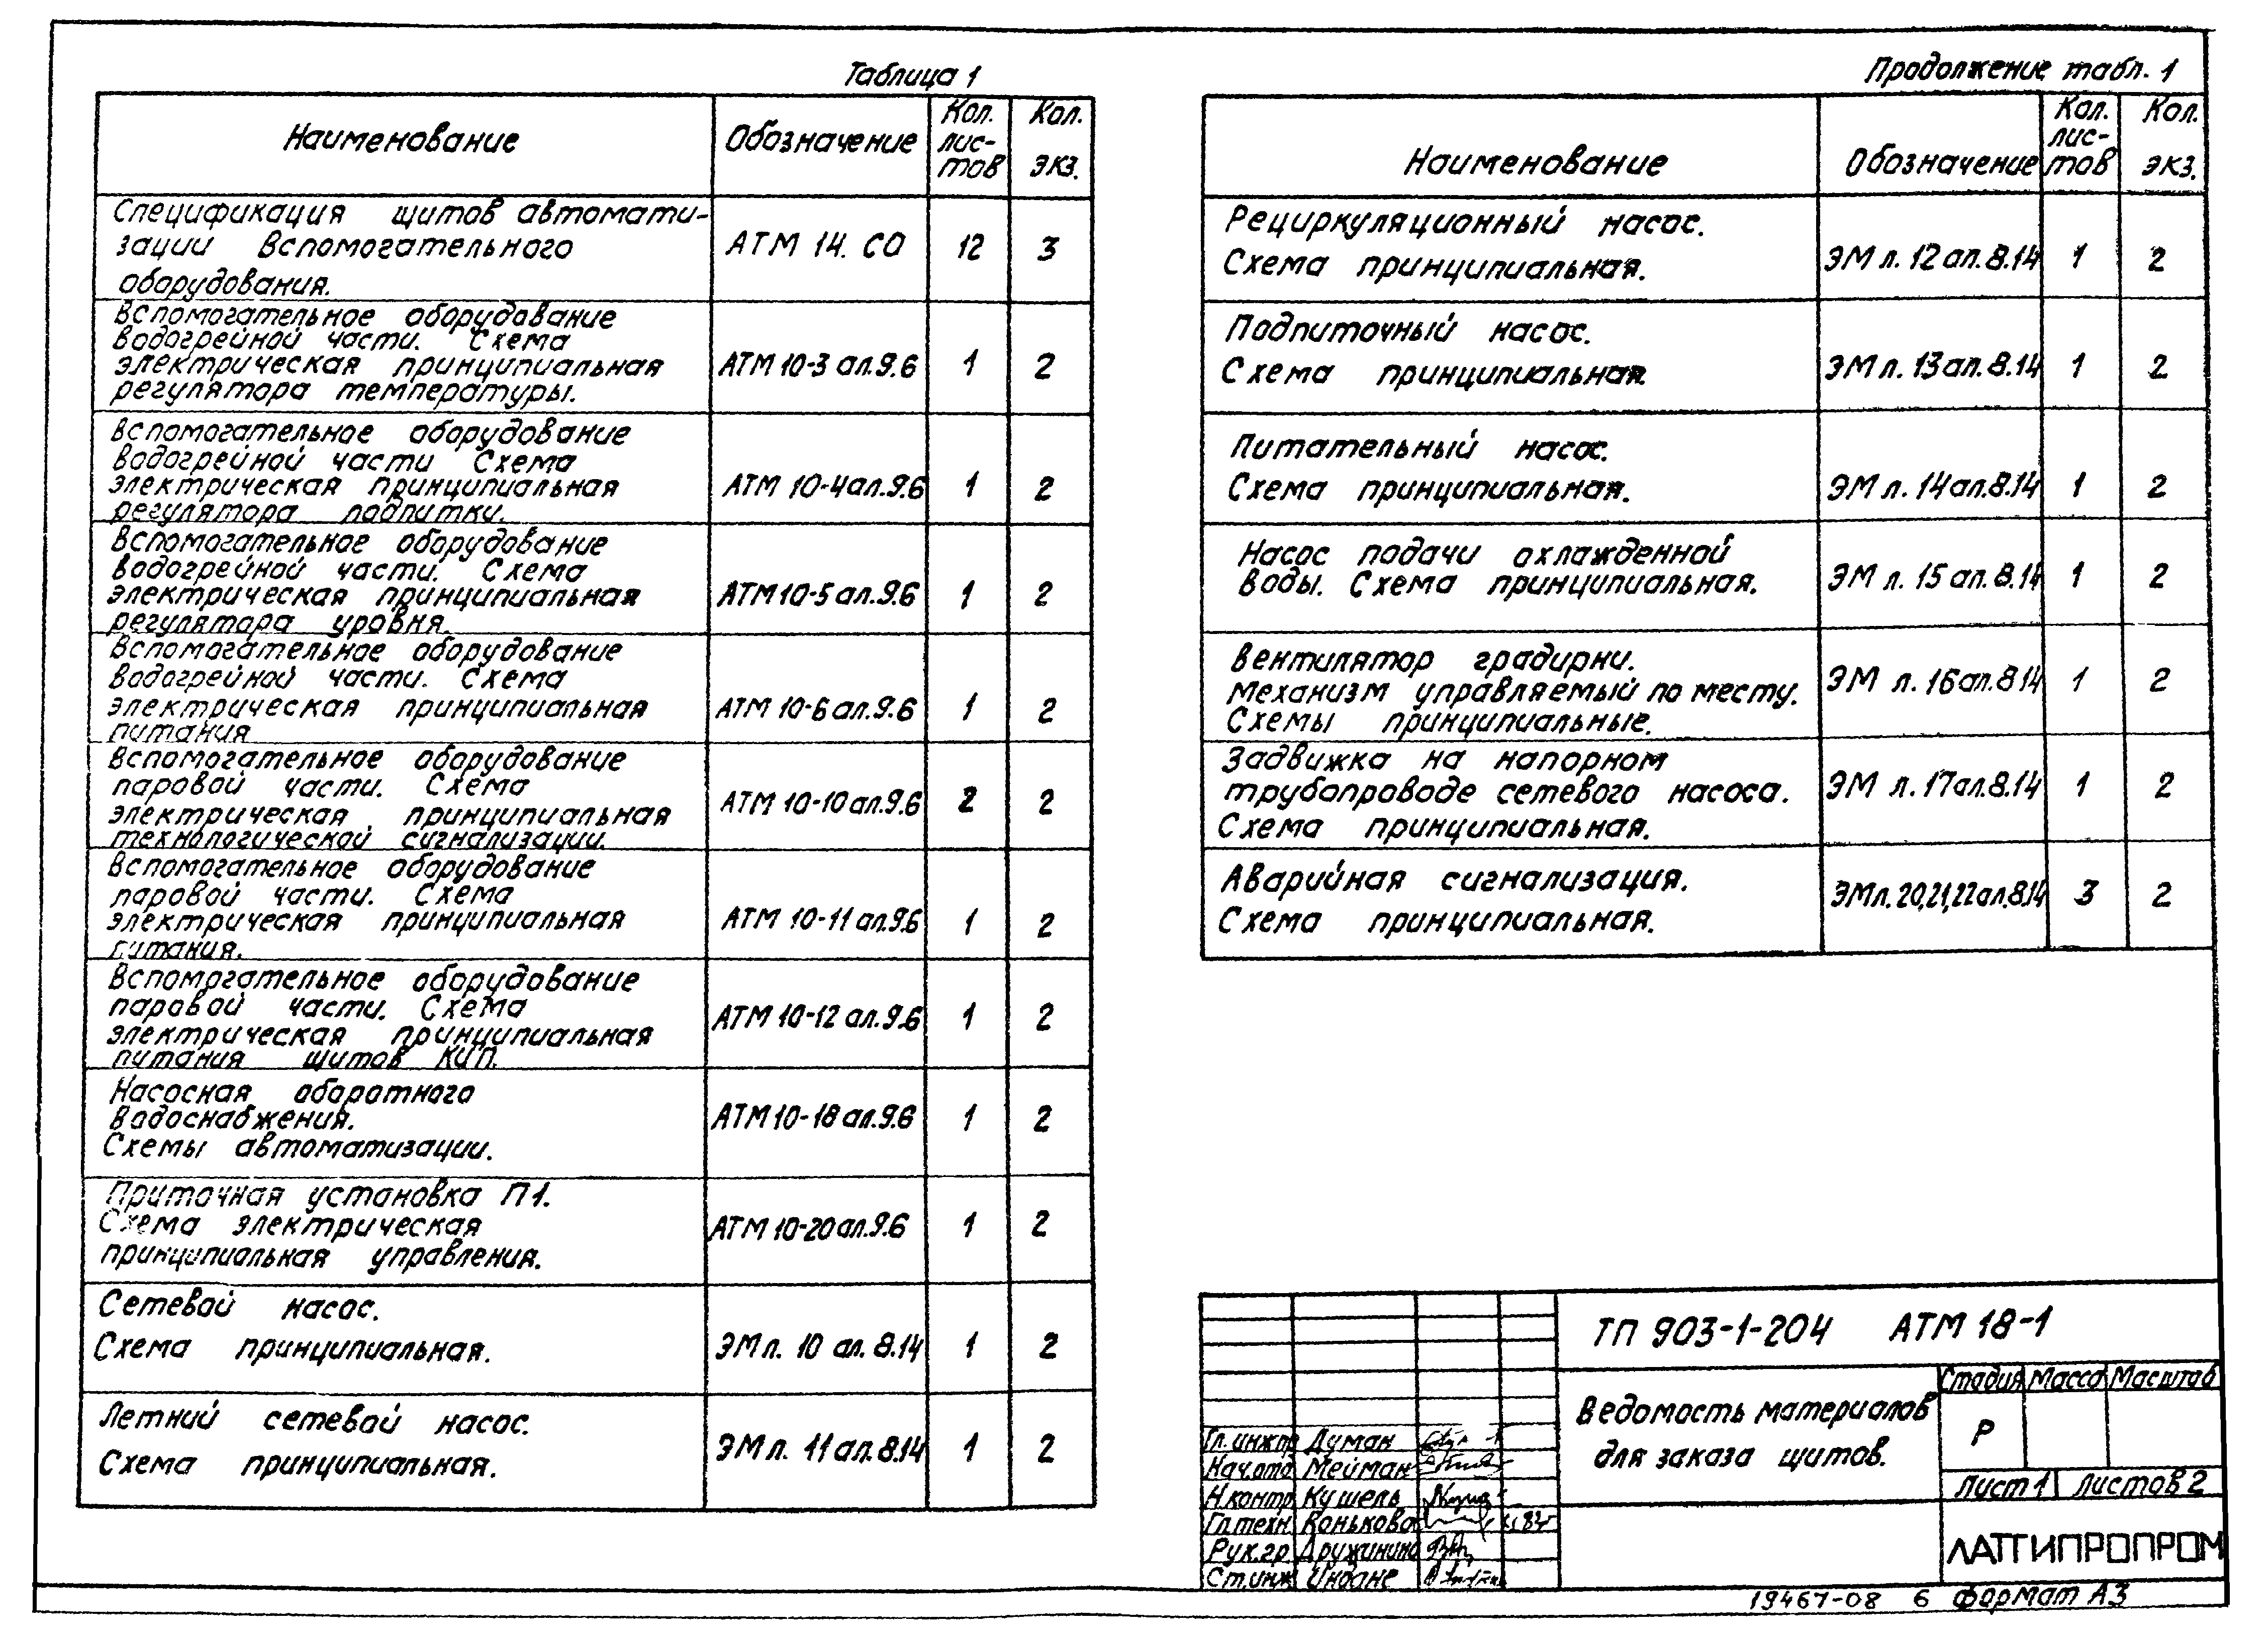 Таблица 1
Наименование
Обозначение
Кол. лис-тов
Кол. экз.
Спецификация щитов автомати-
зации вспомогательного
оборудования.
АТМ 14. СО 12 3
Вспомогательное оборудование
водогрейной части. Схема
электрическая принципиальная
регулятора температуры.
АТМ 10-3 ал.9.6 1 2
Вспомогательное оборудование
водогрейной части Схема
электрическая принципиальная
регулятора подпитки.
АТМ 10-4 ал.9.6 1 2
Вспомогательное оборудование
водогрейной части. Схема
электрическая принципиальная
регулятора уровня.
АТМ 10-5 ал.9.6 1 2
Вспомогательное оборудование
водогрейной части. Схема
электрическая принципиальная
питания
АТМ 10-6 ал.9.6 1 2
Вспомогательное оборудование
паровой части. Схема
электрическая принципиальная
технологической сигнализации.
АТМ 10-10 ал.9.6 2 2
Вспомогательное оборудование
паровой части. Схема
электрическая принципиальная
питания.
АТМ 10-11 ал.9.6 1 2
Вспомогательное оборудование
паровой части. Схема
электрическая принципиальная
питания щитов КИП.
АТМ 10-12 ал.9.6 1 2
Насосная оборотного
водоснабжения.
Схемы автоматизации.
АТМ 10-18 ал.9.6 1 2
Приточная установка П1.
Схема электрическая
принципиальная управления.
АТМ 10-20 ал.9.6 1 2
Сетевой насос.
Схема принципиальная.
ЭМ л. 10 ал. 8.14 1 2
Летний сетевой насос.
Схема принципиальная.
ЭМ л. 11 ал. 8.14 1 2
Продолжение табл. 1
Наименование
Обозначение
Кол. лис-тов
Кол. экз.
Рециркуляционный насос.
Схема принципиальная.
ЭМ л. 12 ал. 8.14 1 2
Подпиточный насос.
Схема принципиальная
ЭМ л. 13 ал. 8.14 1 2
Питательный насос.
Схема принципиальная.
ЭМ л. 14 ал. 8.14 1 2
Насос подачи охлажденной
воды. Схема принципиальная.
ЭМ л. 15 ал. 8.14 1 2
Вентилятор градирни.
Механизм управляемый по месту.
Схемы принципиальные.
ЭМ л. 16 ал. 8.14 1 2
Задвижка на напорном
трубопроводе сетевого насоса.
Схема принципиальная.
ЭМ л. 17 ал. 8.14 1 2
Аварийная сигнализация.
Схема принципиальная.
ЭМ л. 20,21,22 ал. 8.14 3 2
ТП 903-1-204 АТМ 18-1
Ведомость материалов
для заказа щитов.
Стадия Масса Масштаб
Р
Лист 1 Листов 2
ЛАТГИПРОПРОМ
Гл. инж пр Думан
Нач. отд Мейман
Н. контр Кушель
Гл. техн. Конькова
Рук. гр. Дружинина
Ст. инж Индане
19467-08 6 Формат А3